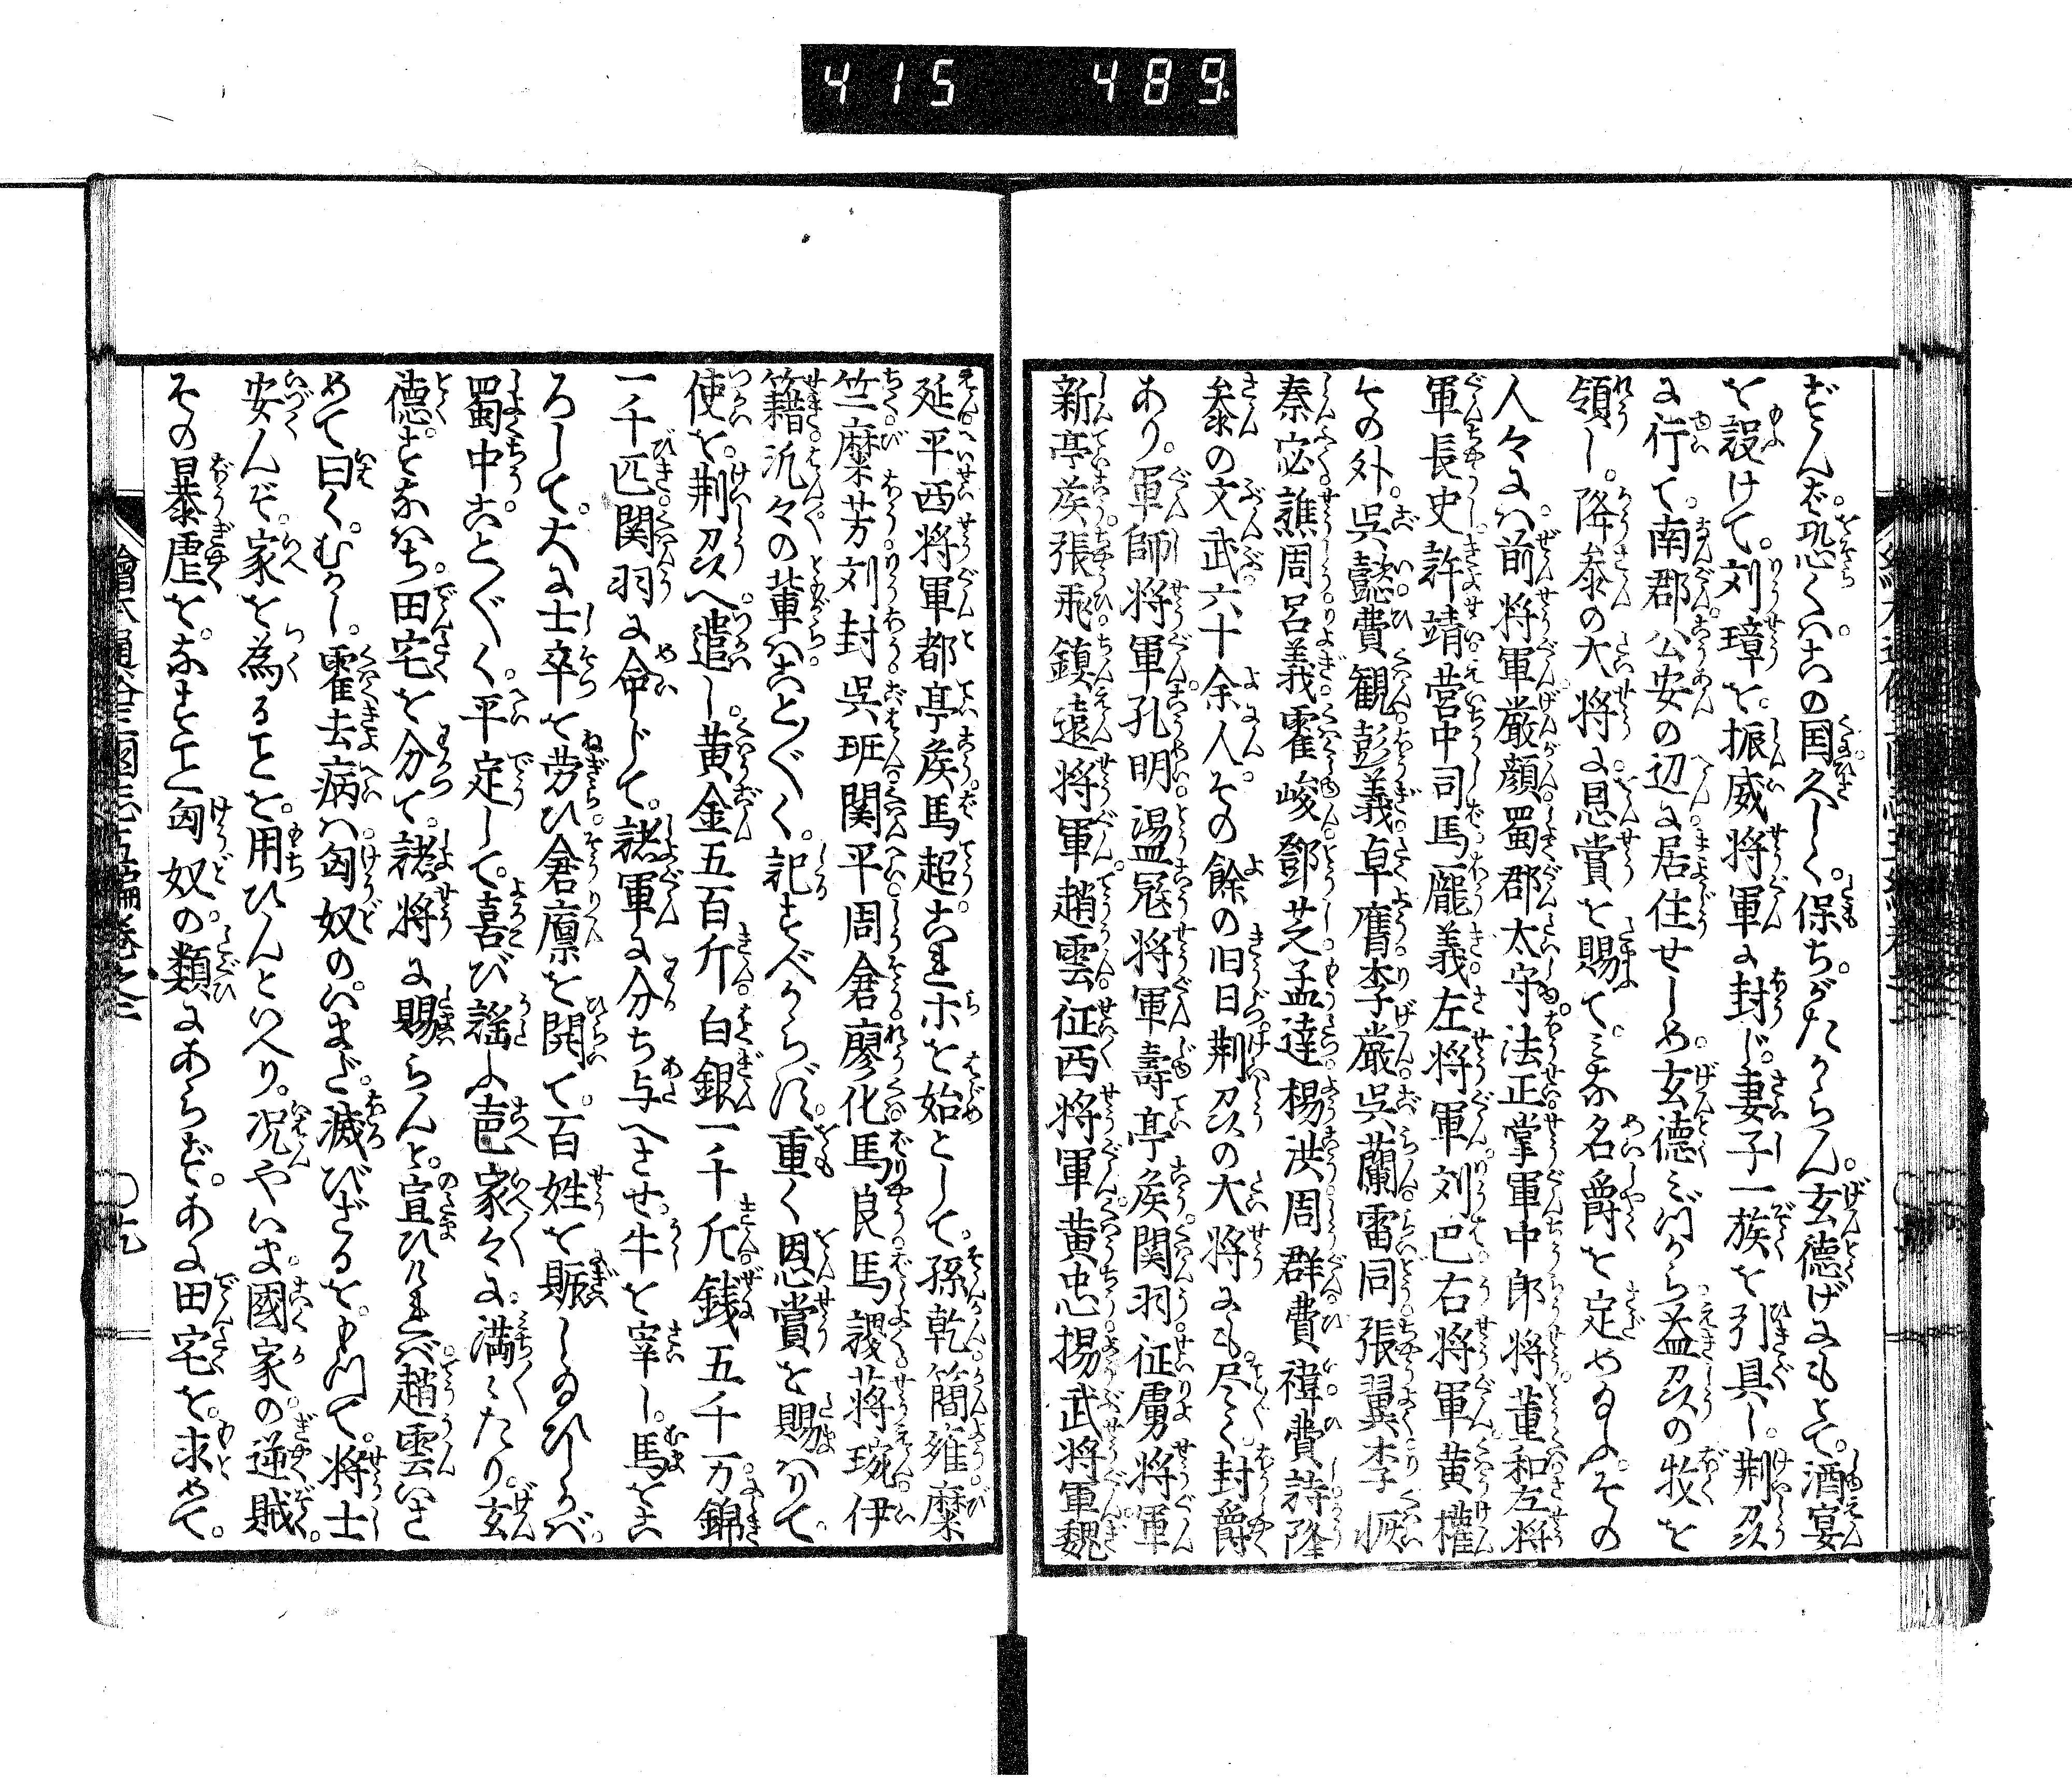 415 489
ずんば。恐くハ。この国久しく。保ちがたからん。玄徳げにもとて。酒宴
を設けて。刘璋を。振威将軍に封じ。妻子一族を引具し。荆刕
に行て。南郡公安の辺に居住せしめ。玄徳ミづから益刕の牧を
領し。降参の大将に恩賞を賜て。ミな名爵を定めたまふ。その
人々にハ。前将軍厳顔。蜀郡太守法正。掌軍中郎将董和。左将
軍長史許靖。営中司馬龐義。左将軍刘巴。右将軍黄權。
その外。呉懿。費観。彭義。卓膺。李厳。呉蘭。雷同。張翼。李恢。
秦宓。譙周。呂義。霍峻。鄧芝。孟達。楊洪。周群。費禕。費詩。降
参の文武。六十余人。その餘の旧日荆刕の大将にも。尽く封爵
あり。軍師将軍孔明。盪冦将軍壽亭矦関羽。征虜将軍
新亭矦張飛。鎮遠将軍趙雲。征西将軍黄忠。揚武将軍魏
延。平西将軍都亭矦馬超。これホを始として。孫乾。簡雍。糜
竺。糜芳。刘封。呉班。関平。周倉。廖化。馬良。馬謖。蒋琬。伊
籍。汎々の輩ハことごとく。記すべからず。重く恩賞を賜ハりて。
使を。荆刕へ遣し。黄金五百斤。白銀一千斤。銭五千万。錦
一千匹。関羽に命じて。諸軍に分ち与へさせ。牛を宰し。馬をこ
ろして。大に士卒を労ひ。倉廪を開て。百姓を賑しゐひしかバ。
蜀中ことごとく。平定して。喜び謡ふ声。家々に。満々たり。玄
徳。すなハち。田宅を分て。諸将に賜らんと。宣ひけれバ。趙雲いさ
めて曰く。むかし。霍去病ハ。匈奴の。いまだ。滅びざるを。もつて。将士
安んぞ。家を為ることを。用ひんといへり。况やいま。國家の。逆賊。
その暴虐を。なすこと匈奴の類にあらず。あに田宅を。求めて。